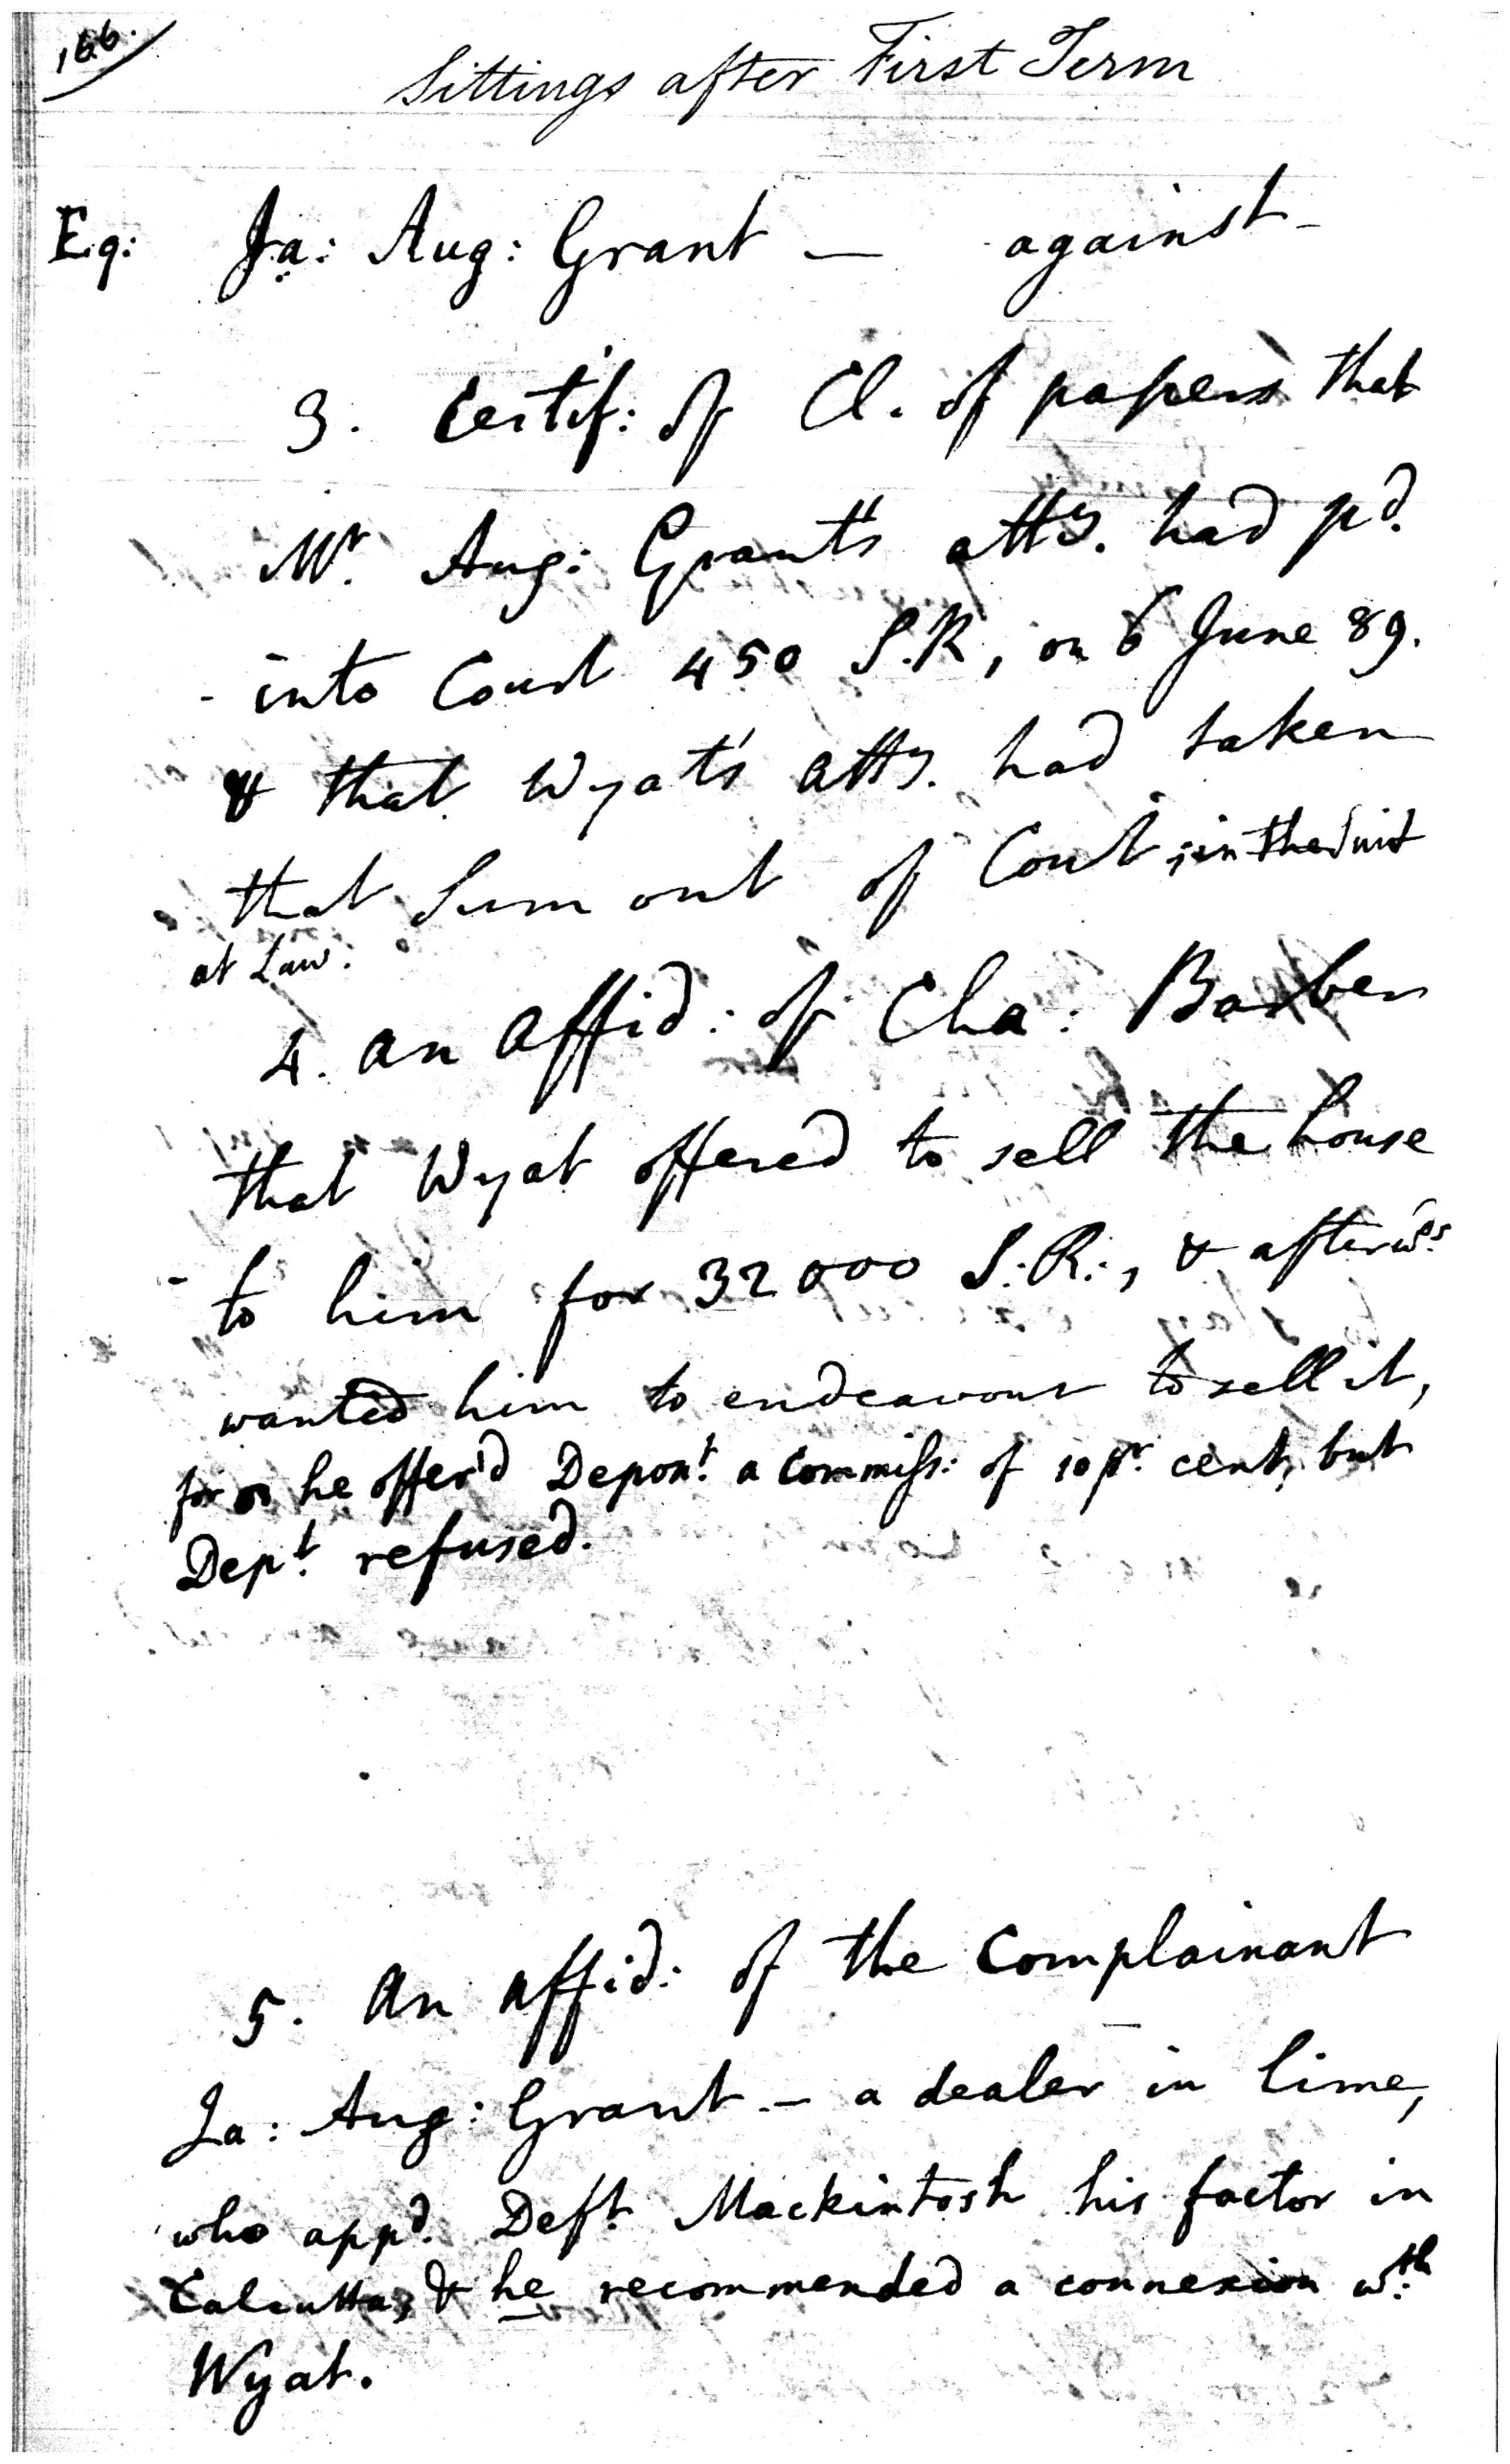 166.
Sittings after First Term
Eq: Ja: Aug: Grant — against –
3. Certif: of Cl. of papers that
Mr. Aug: Grant's atty. had pd.
into Court 450 S.R, on 6 June 89.
& that Wyat's atty. had taken
that Sum out of Court; in the Suit
at Law.
4. An Affid: of Cha: Barber
that Wyat offered to sell the house
to him for 32000 S:R:, & afterwds.
wanted him to endeavour to sell it,
for he offer'd Depont. a Commiss: of 10 pr. cent, but
Dept. refused.
5. An Affid: of the Complainant
Ja: Aug: Grant – a dealer in lime,
who appd. Deft. Mackintosh his factor in
Calcutta, & he recommended a connexion wth.
Wyat.